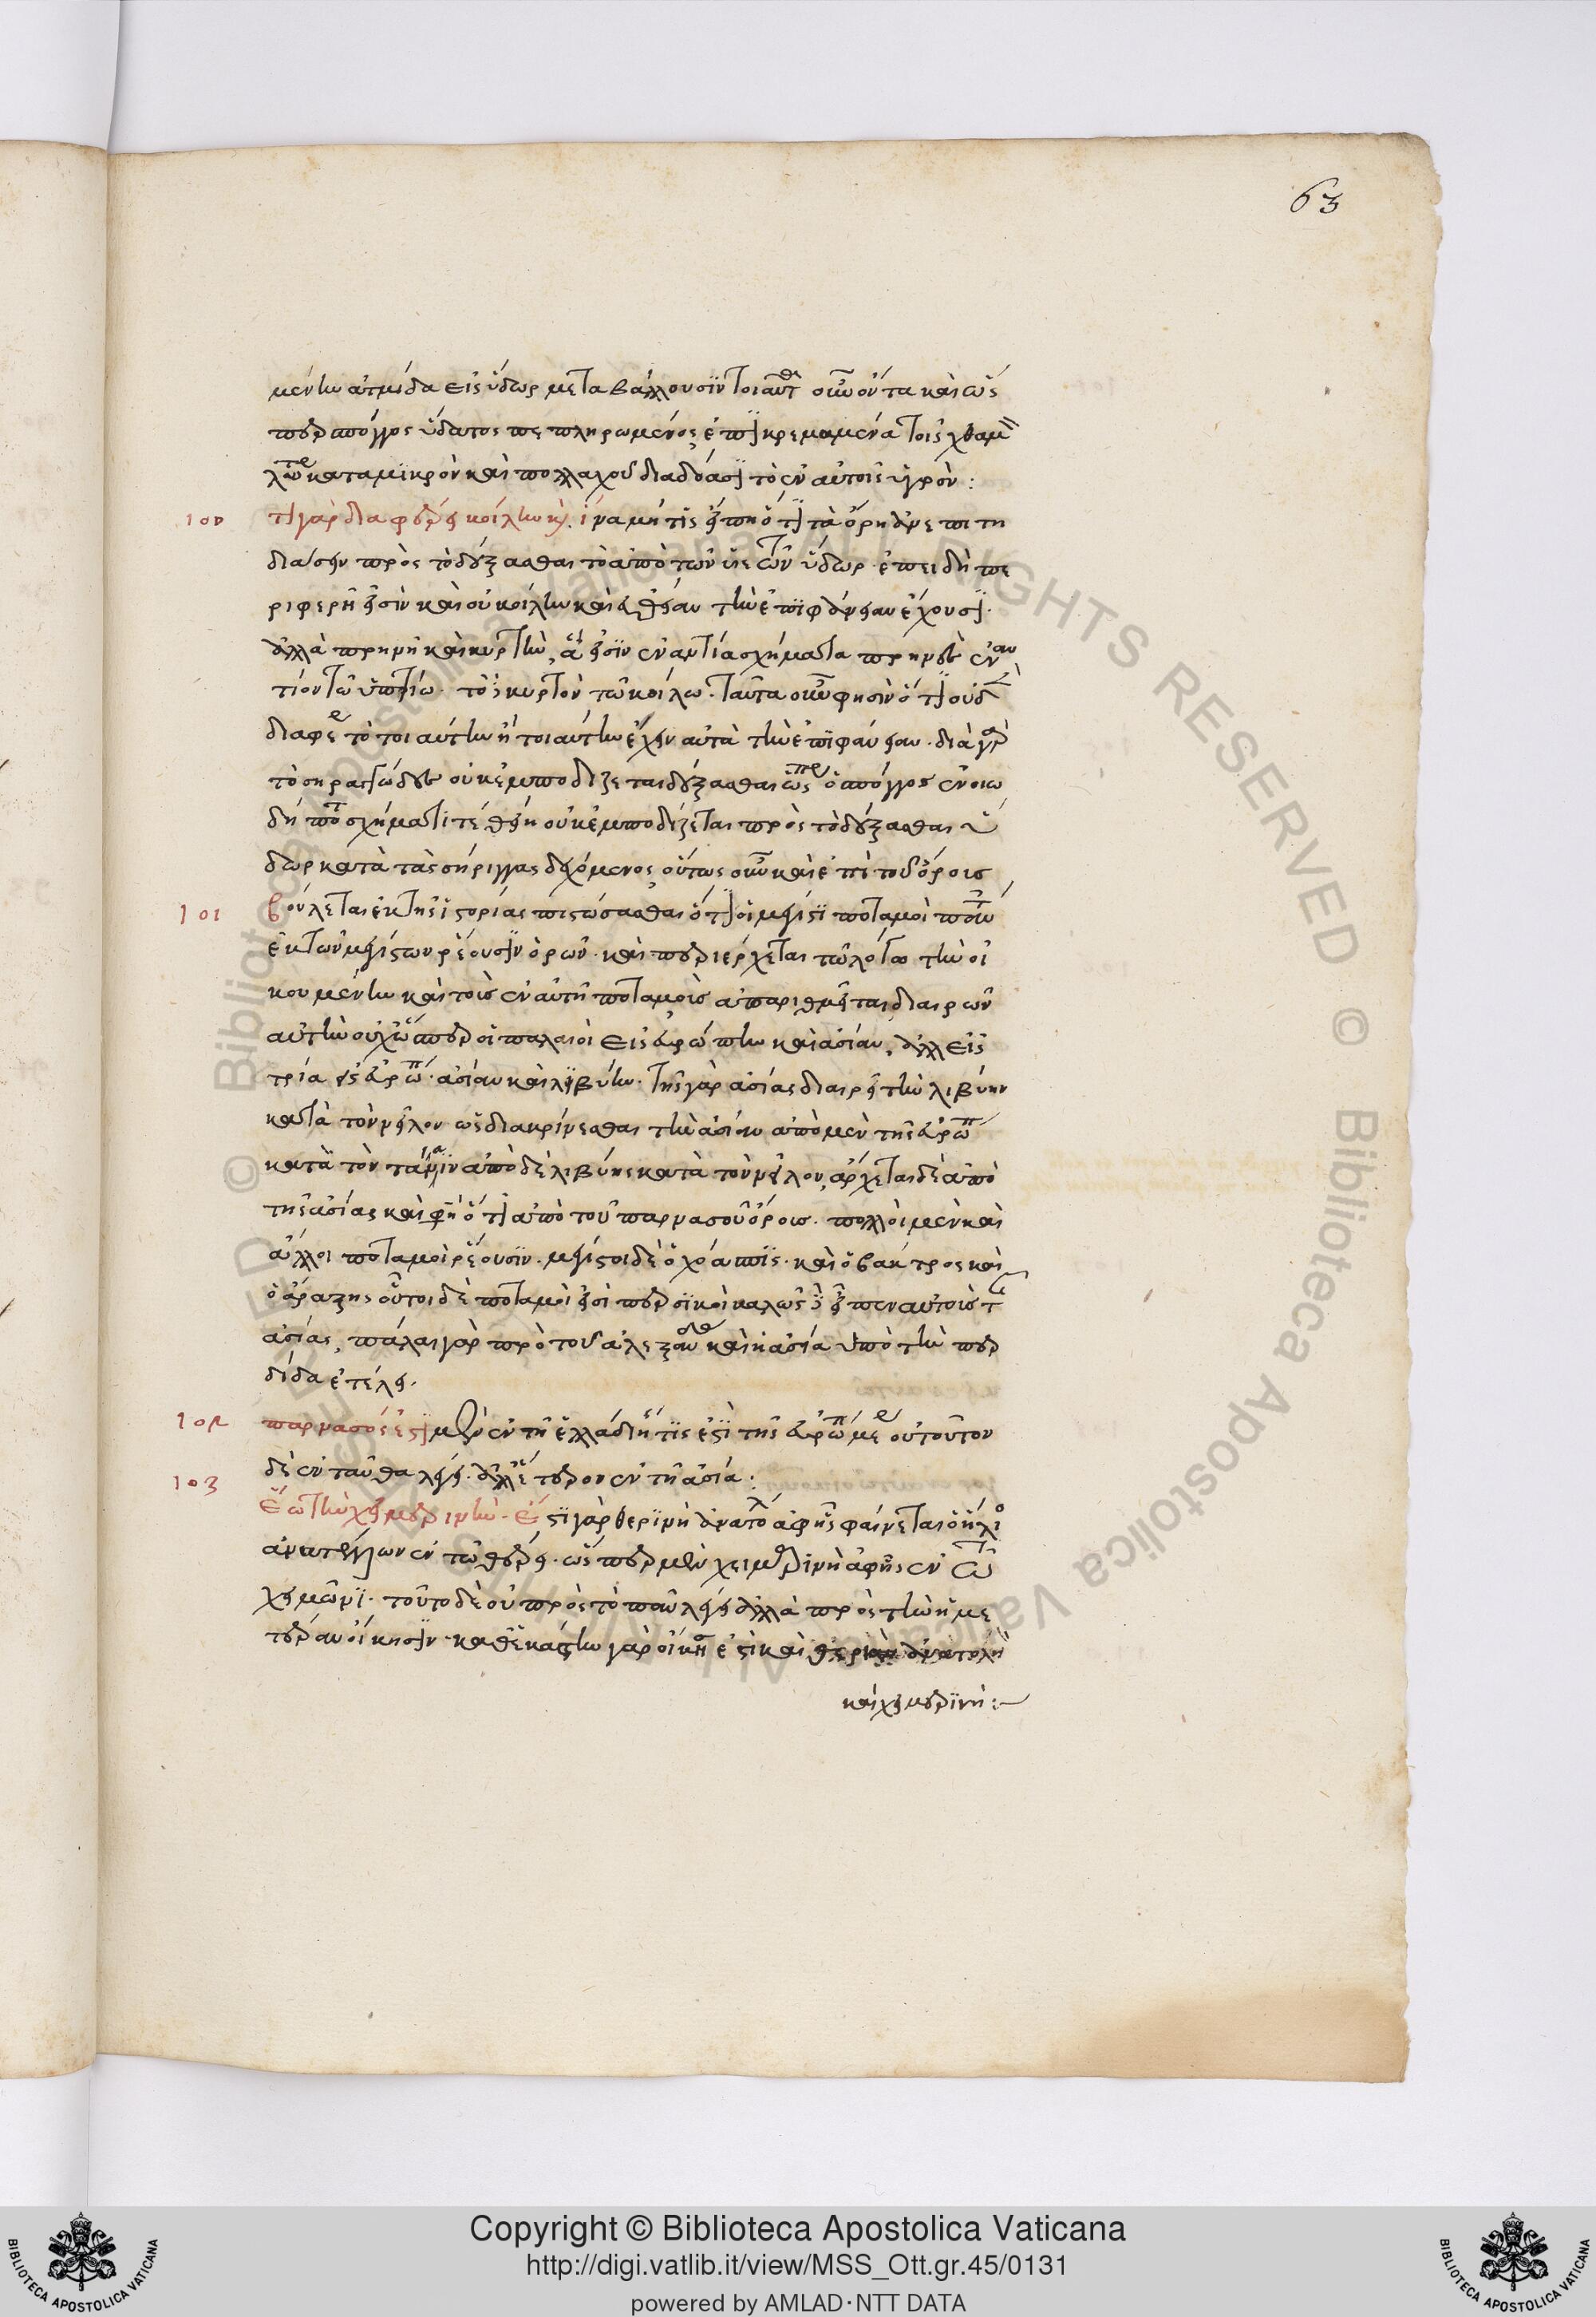 63
μένην ἀτμίδα εἰς ὕδωρ μεταβάλλουσιν τοιαῦτα οὖν ὄντα καὶ ὡς
περ σπόγγος ὕδατος πεπληρωμένος, ἐπικρεμάμενα τοῖς χθαμα
λωτέροις κατὰ μικρὸν καὶ πολλαχοῦ διαδιδόασι τὸ ἐν αὐτοῖς ὑγρόν:
100 τί γὰρ διαφέρει κοίλην καὶ. ἵνα μή τις εἴπῃ ὅτι τὰ ὄρη ἀνεπιτη
δείως ἔχει πρὸς τὸ δέξασθαι τὸ ἀπὸ τῶν ὑετῶν ὕδωρ. ἐπειδὴ πε
ριφερῆ εἰσιν καὶ οὐ κοίλην καὶ εὐθεῖαν τὴν ἐπιφάνειαν ἔχουσι.
ἀλλὰ πρηνῆ καὶ κυρτὴν, ἅ εἰσιν ἐναντία σχήματα πρηνὲς ἐναν
τίον τῷ ὑπτίῳ. τὸ δὲ κυρτὸν τῷ κοίλῳ. ταῦτα οὖν φησὶν ὅτι οὐδὲν
διαφέρει τὸ τοιαύτην ἢ τοιαύτην ἔχειν αὐτὰ τὴν ἐπιφάνειαν. διὰ γὰρ
τὸ σηραγγῶδες οὐκ ἐμποδίζεται δέξασθαι ὥσπερ ὁ σπόγγος ἐν οἵῳ
δήποτε σχήματι τεθείη οὐκ ἐμποδίζεται πρὸς τὸ δέξασθαι ὕ
δωρ κατὰ τὰς σήριγγας δεχόμενος, οὕτως οὖν καὶ ἐπὶ τοῦ ὄρους
101 βούλεται ἐκ τῆς ἱστορίας πιστώσασθαι ὅτι οἱ μέγιστοι ποταμοὶ
ἐκ τῶν μεγίστων ῥέουσιν ὀρῶν. καὶ περιέρχεται τῷ λόγῳ τὴν οἰ
κουμένην καὶ τοῖς ἐν αὐτῇ ποταμοῖς ἀπαριθμεῖται διαιρῶν
αὐτὴν οὐχ ὥσπερ οἱ παλαιοὶ εἰς εὐρώπην καὶ ἀσίαν, ἀλλ' εἰς
τρία εἰς εὐρώπην. ἀσίαν καὶ λιβύην. τῆς γὰρ ἀσίας διαιρεῖ τὴν λιβύην
κατὰ τὸν νεῖλον ὡς διακρίνεσθαι τὴν ἀσίαν ἀπὸ μὲν τῆς εὐρώπης
κατὰ τὸν τάναϊν ἀπὸ δὲ λιβύης κατὰ τὸν νεῖλον, ἄρχεται δὲ ἀπὸ
τῆς ἀσίας καὶ φησὶν ὅτι ἀπὸ τοῦ παρνασοῦ ὄρους. πολλοὶ μὲν καὶ
ἄλλοι ποταμοὶ ῥέουσιν. μέγιστοι δὲ ὁ χοάσπις. καὶ ὁ βάκτρος καὶ
ὁ ἀράξης οὗτοι δὲ ποταμοί εἰσι περσικοὶ καλῶς δὲ εἶπεν αὐτοὺς τῆς
ἀσίας, πάλαι γὰρ πρὸ τοῦ ἀλεξάνδρου καὶ ἡ ἀσία ὑπὸ τὴν περ
σίδα ἐτέλει.
102 παρνασός ἐστι μὲν ἐν τῇ ἑλλάδι ἥτις ἐστὶ τῆς εὐρώπης μέρος οὐ τοῦτον
δὲ ἐνταῦθα λέγει. ἀλλ' ἕτερον ἐν τῇ ἀσίᾳ:
103 ἕω τὴν χειμερινήν. ἔστι γὰρ θερινὴ ἀνατολὴ ἀφ' ἧς φαίνεται ὁ ἥλιος
ἀνατέλλων ἐν τῷ θέρει. ὥσπερ μὲν χειμερινὴ ἀφ' ἧς ἐν τῷ
χειμῶνι. τοῦτο δὲ οὐ πρὸς τὸ πᾶν λέγει ἀλλὰ πρὸς τὴν ἡμε
τέραν οἴκησιν. καθ' ἑκάστην γὰρ οἴκησιν ἐστὶ καὶ θερινὴ ἀνατολὴ
καὶ χειμερινή:
Copyright © Biblioteca Apostolica Vaticana
http://digi.vatlib.it/view/MSS_Ott.gr.45/0131
powered by AMLAD·NTT DATA